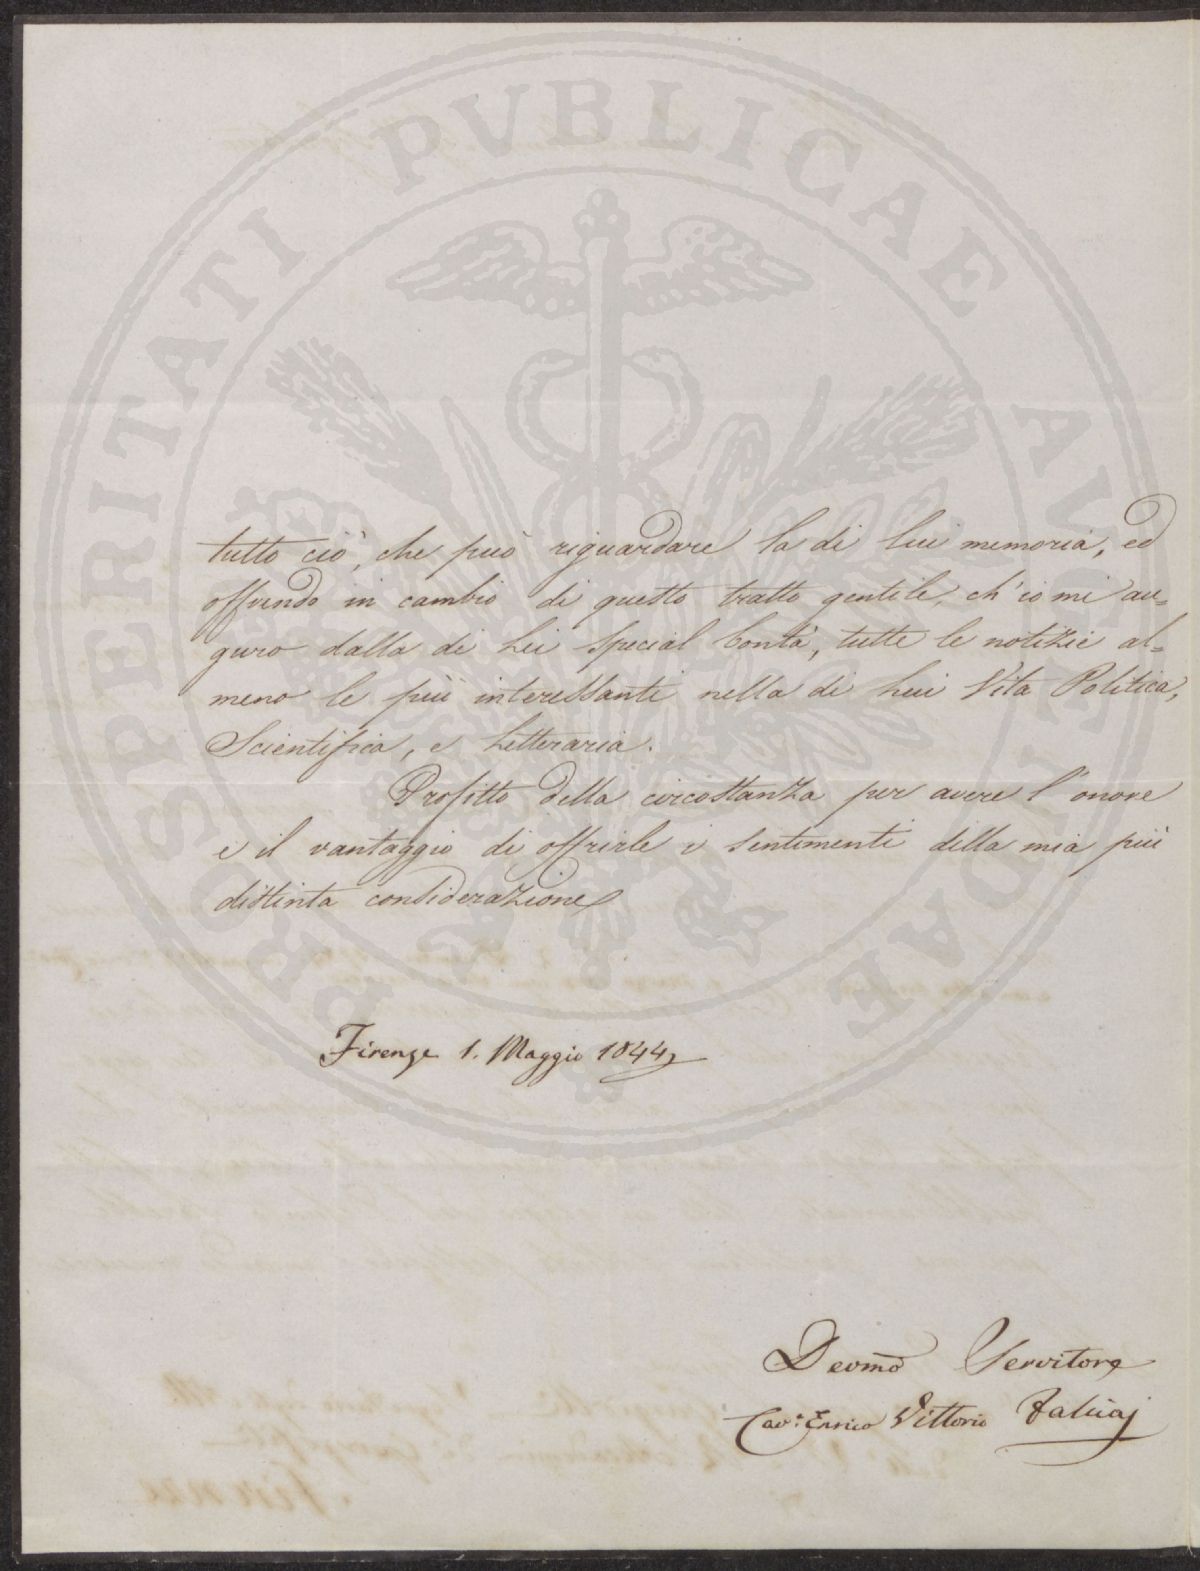 PROSPERITATI PVBLICAE AVGENDAE
tutto ciò, che può riguardare la di lui memoria, ed
offrendo in cambio di questo tratto gentile, ch'io mi au=
guro dalla di Lei special bontà, tutte le notizie al=
meno le più interessanti nella di Lui Vita Politica,
Scientifica, e Letteraria.
Profitto della circostanza per avere l'onore
e il vantaggio di offrirle i sentimenti della mia più
distinta considerazione
Firenze 1. Maggio 1844,
Devmo Servitore
Cav: Enrico Vittorio